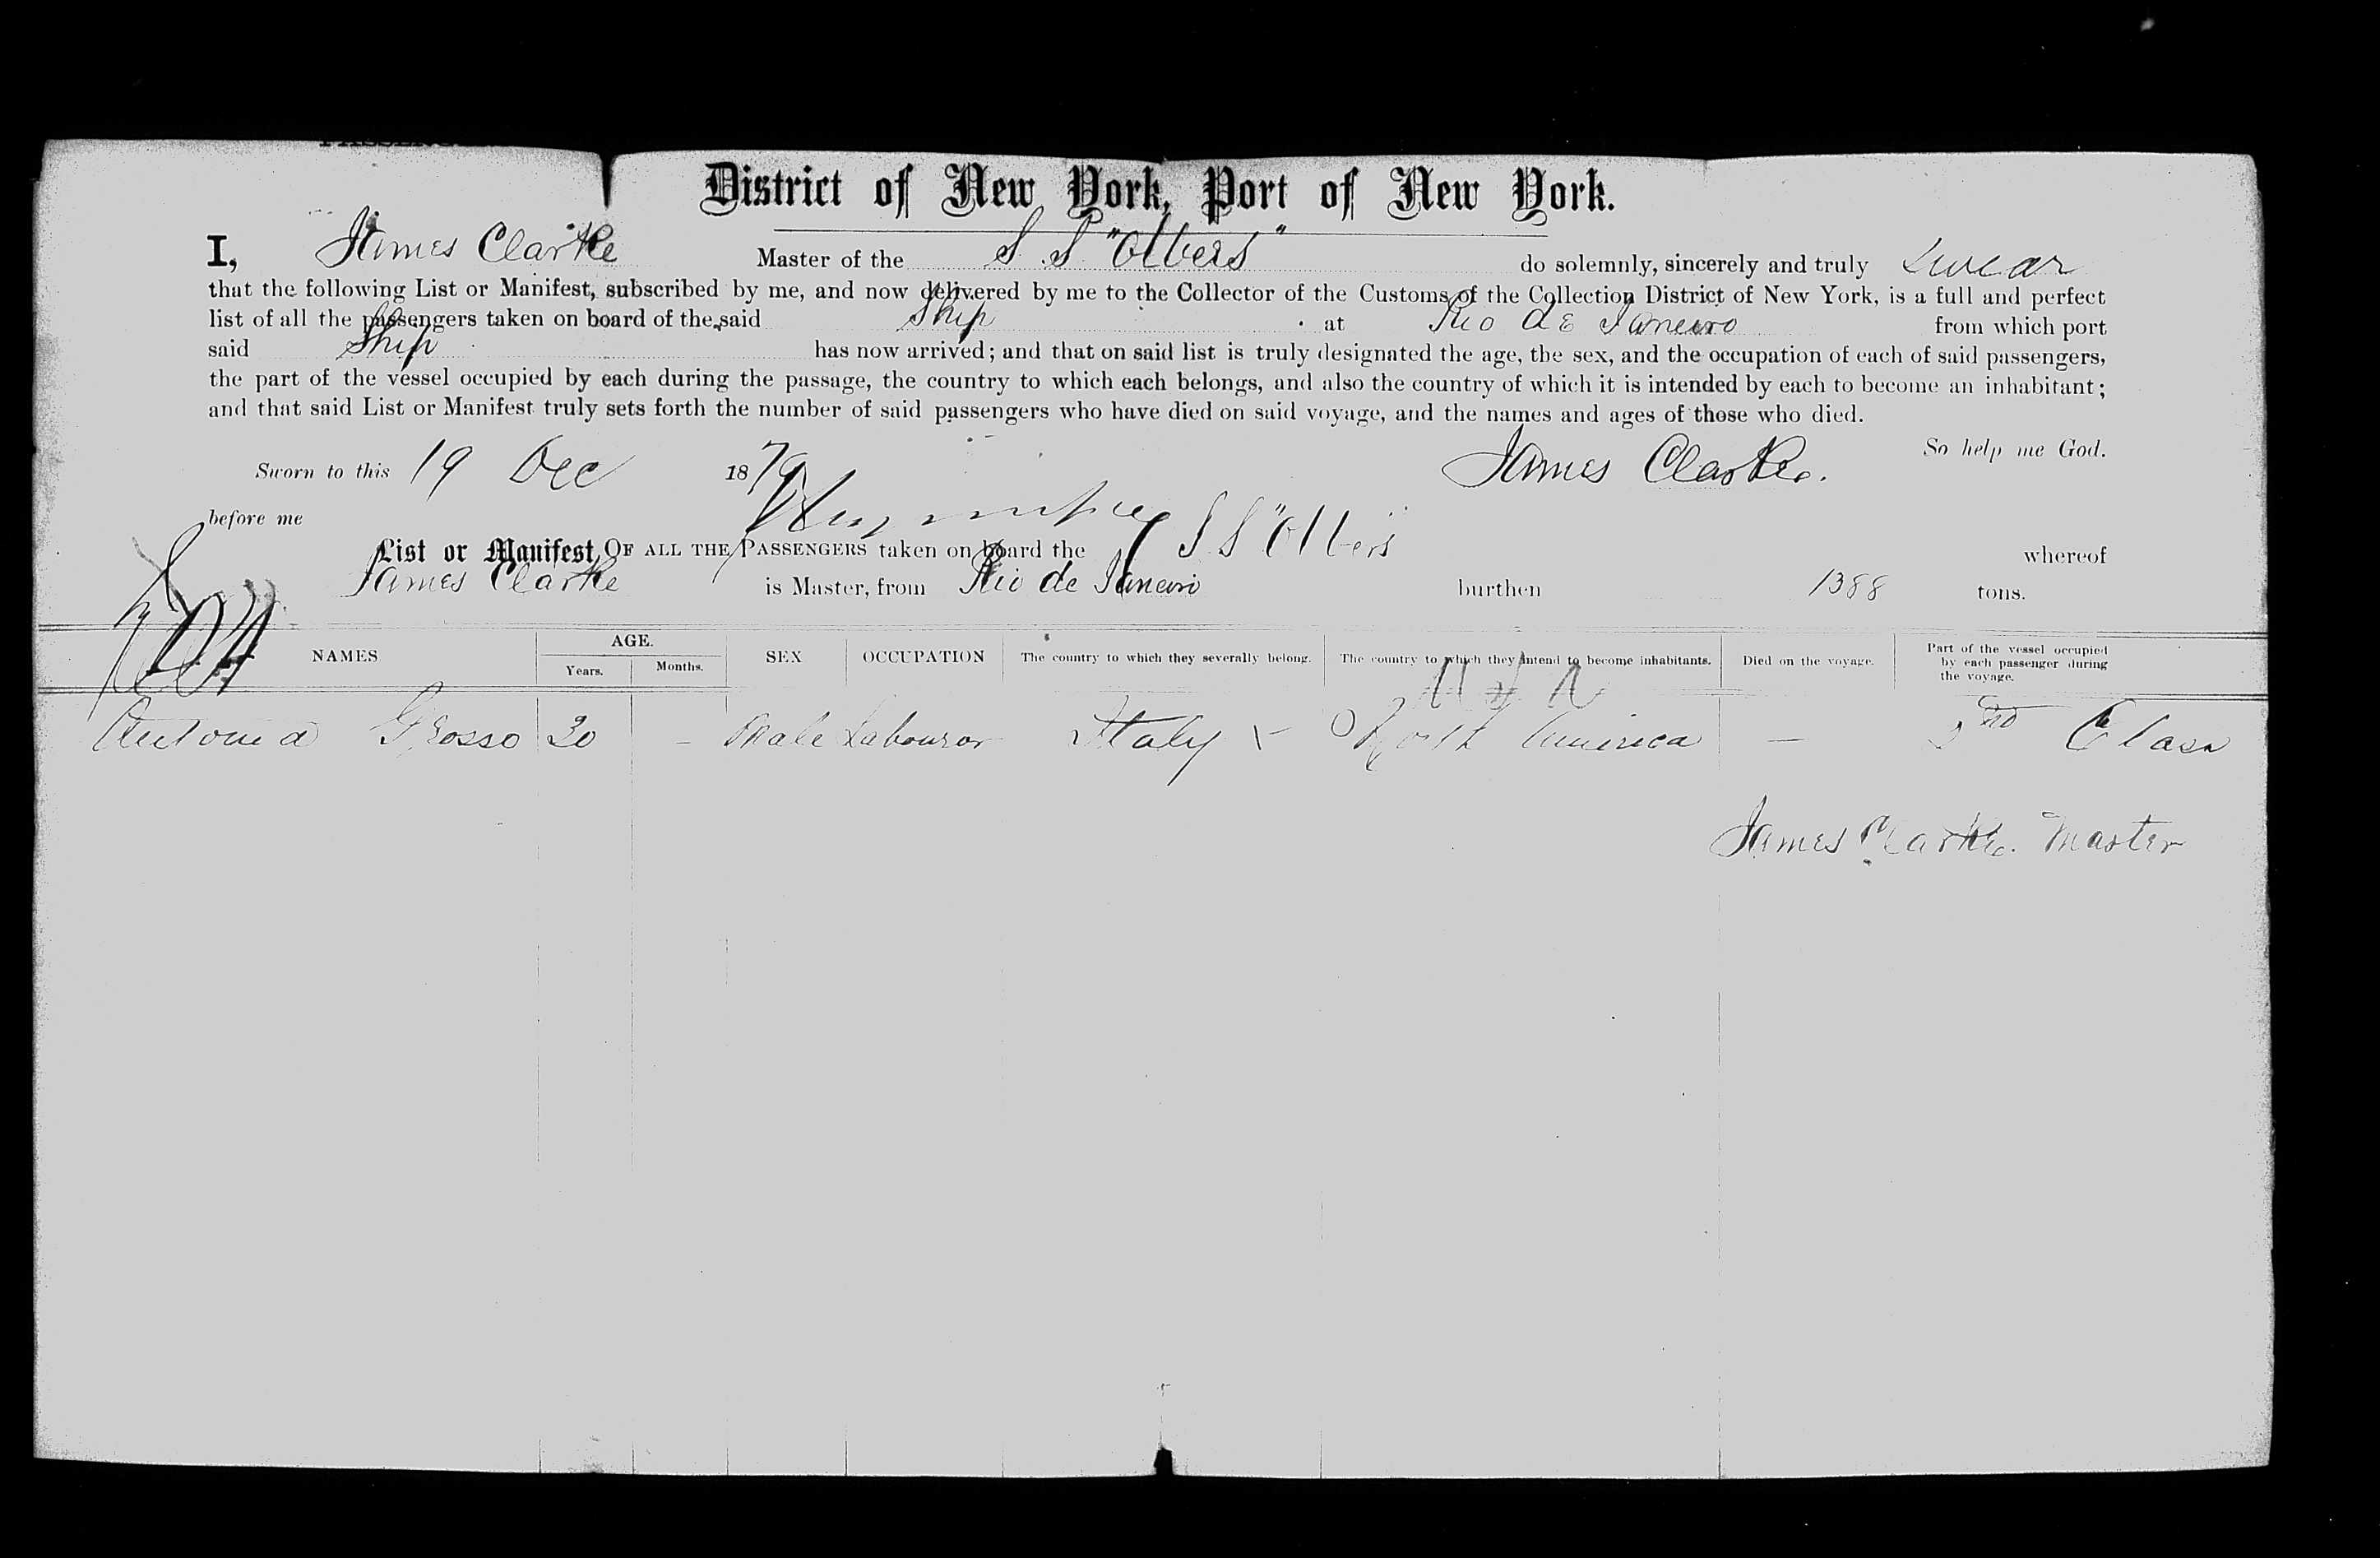 District of New York, Port of New York.
I, James Clarke Master of the S.S "Olbers" do solemnly, sincerely and truly swear
that the following List or Manifest, subscribed by me, and now delivered by me to the Collector of the Customs of the Collection District of New York, is a full and perfect
list of all the passengers taken on board of the said Ship at Rio de Janeiro from which port
said Ship has now arrived; and that on said list is truly designated the age, the sex, and the occupation of each of said passengers,
the part of the vessel occupied by each during the passage, the country to which each belongs, and also the country of which it is intended by each to become an inhabitant;
and that said List or Manifest truly sets forth the number of said passengers who have died on said voyage, and the names and ages of those who died.
So help me God.
Sworn to this 19 Dec 1879 James Clarke.
before me
List or Manifest, OF ALL THE PASSENGERS taken on board the S S "Olbers" whereof
James Clarke is Master, from Rio de Janeiro burthen 1388 tons.
NAMES AGE. Years. Months. SEX OCCUPATION The country to which they severally belong. The country to which they intend to become inhabitants. Died on the voyage. Part of the vessel occupied by each passenger during the voyage.
Grosso 30 - Male Labourer Italy North America — Class
James Clarke. Master